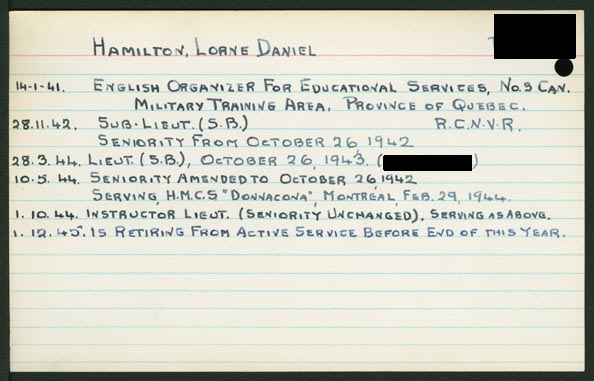 HAMILTON, LORNE DANIEL
14-1-41. ENGLISH ORGANIZER FOR EDUCATIONAL SERVICES, NO.3 CAN.
MILITARY TRAINING AREA, PROVINCE OF QUEBEC.
28.11.42. SUB-LIEUT. (S.B.) R.C.N.V.R.
SENIORITY FROM OCTOBER 26, 1942
28.3.44. LIEUT. (S.B.), OCTOBER 26, 1943. ( )
10.5.44. SENIORITY AMENDED TO OCTOBER 26, 1942
SERVING, H.M.C.S "DONNACONA", MONTREAL, FEB. 29, 1944.
1.10.44. INSTRUCTOR LIEUT. (SENIORITY UNCHANGED). SERVING AS ABOVE.
1.12.45. IS RETIRING FROM ACTIVE SERVICE BEFORE END OF THIS YEAR.